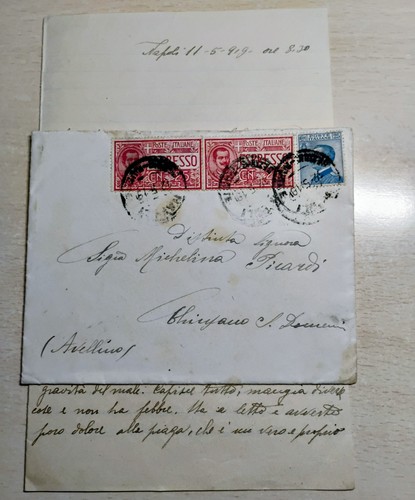 Napoli 11-5-919- ore 8.30
POSTE ITALIANE
ESPRESSO
POSTE ITALIANE
ESPRESSO
Distinta Signora
Sigra Michelina Picardi
Chiusano S. Domeni
(Avellino)
gravità del male. Capisce tutto, mangia diverse
cose e non ha febbre. Sta a letto e avverte
poco dolore alla piaga, che è un vero e proprio